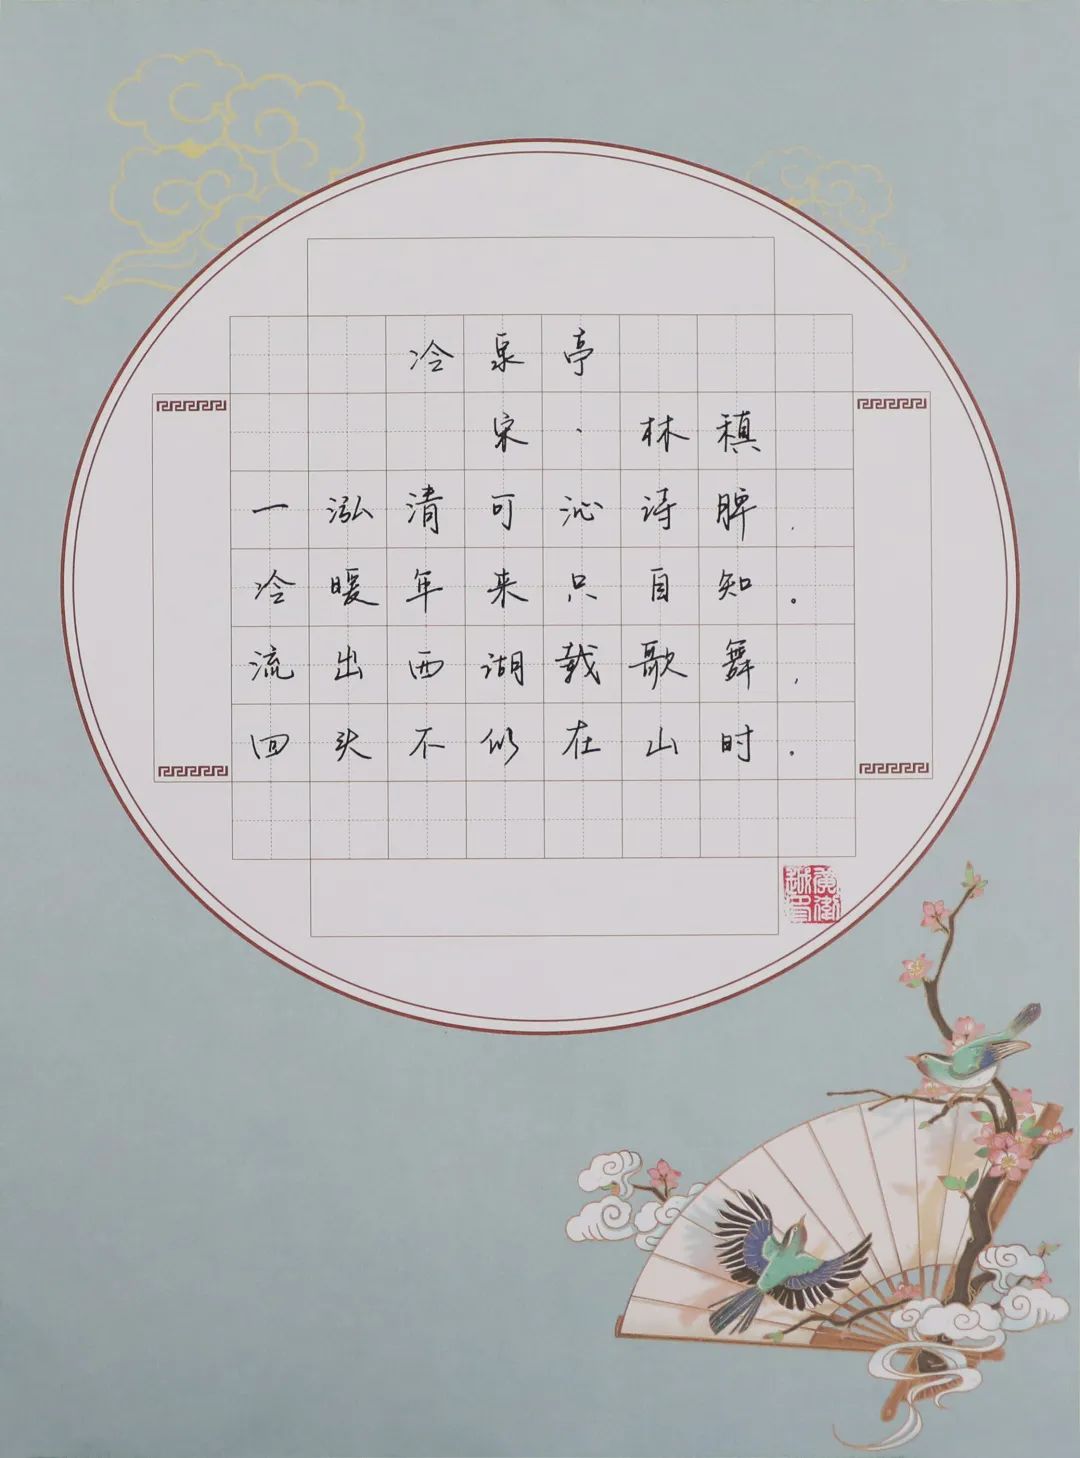 冷泉亭
宋·林稹
一泓清可沁诗脾，
冷暖年来只自知。
流出西湖载歌舞，
回头不似在山时。